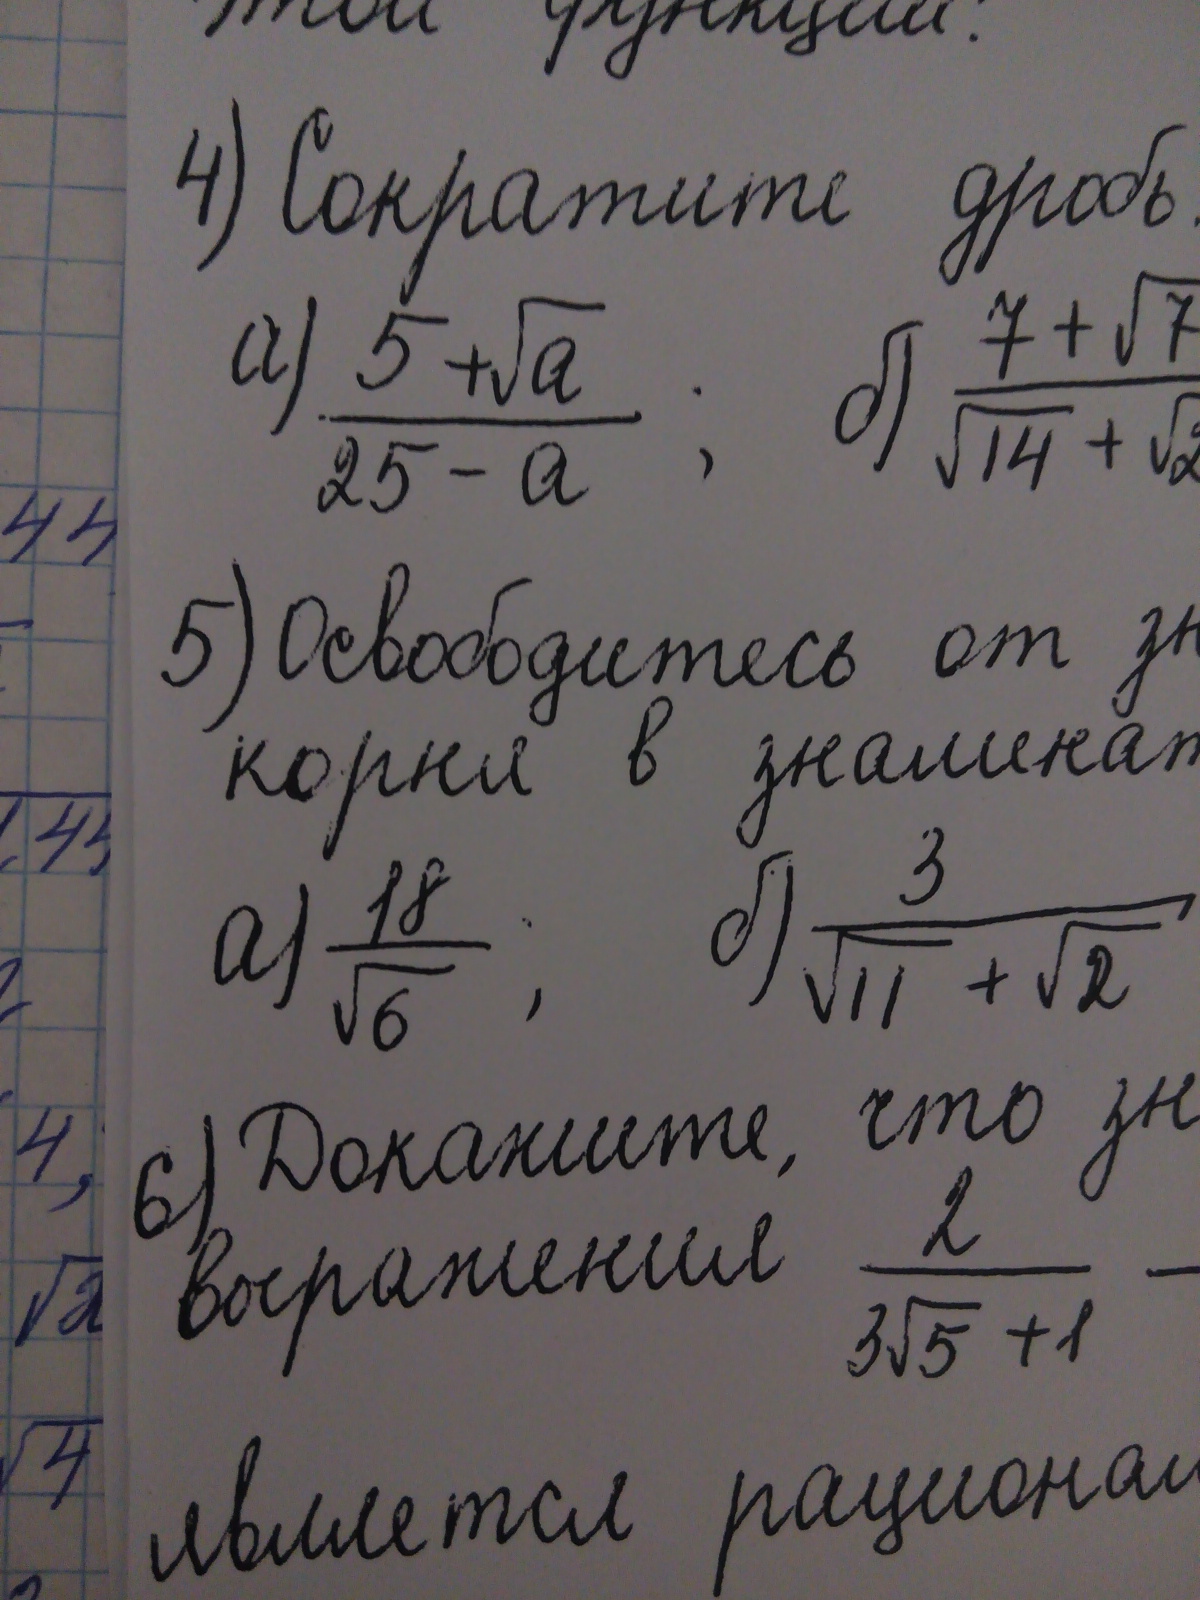 этой функции?
4) Сократите дробь.
а) (5 + √a)/(25 - a) ; б) (7 + √7)/(√14 + √2
5) Освободитесь от зн
корня в знаменат
а) 18/√6 ; б) 3/(√11 + √2)
6) Докажите, что зн
выражения 2/(3√5 + 1) -
является рационал
44
,44
4,
√2
√4